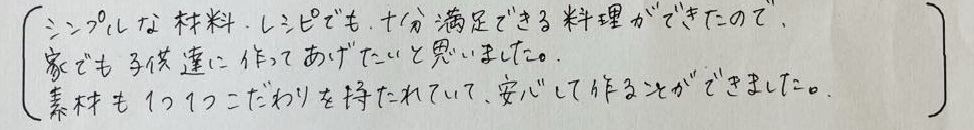 シンプルな材料・レシピでも、十分満足できる料理ができたので、
家でも子供達に作ってあげたいと思いました。
素材も1つ1つこだわりを持たれていて、安心して作ることができました。